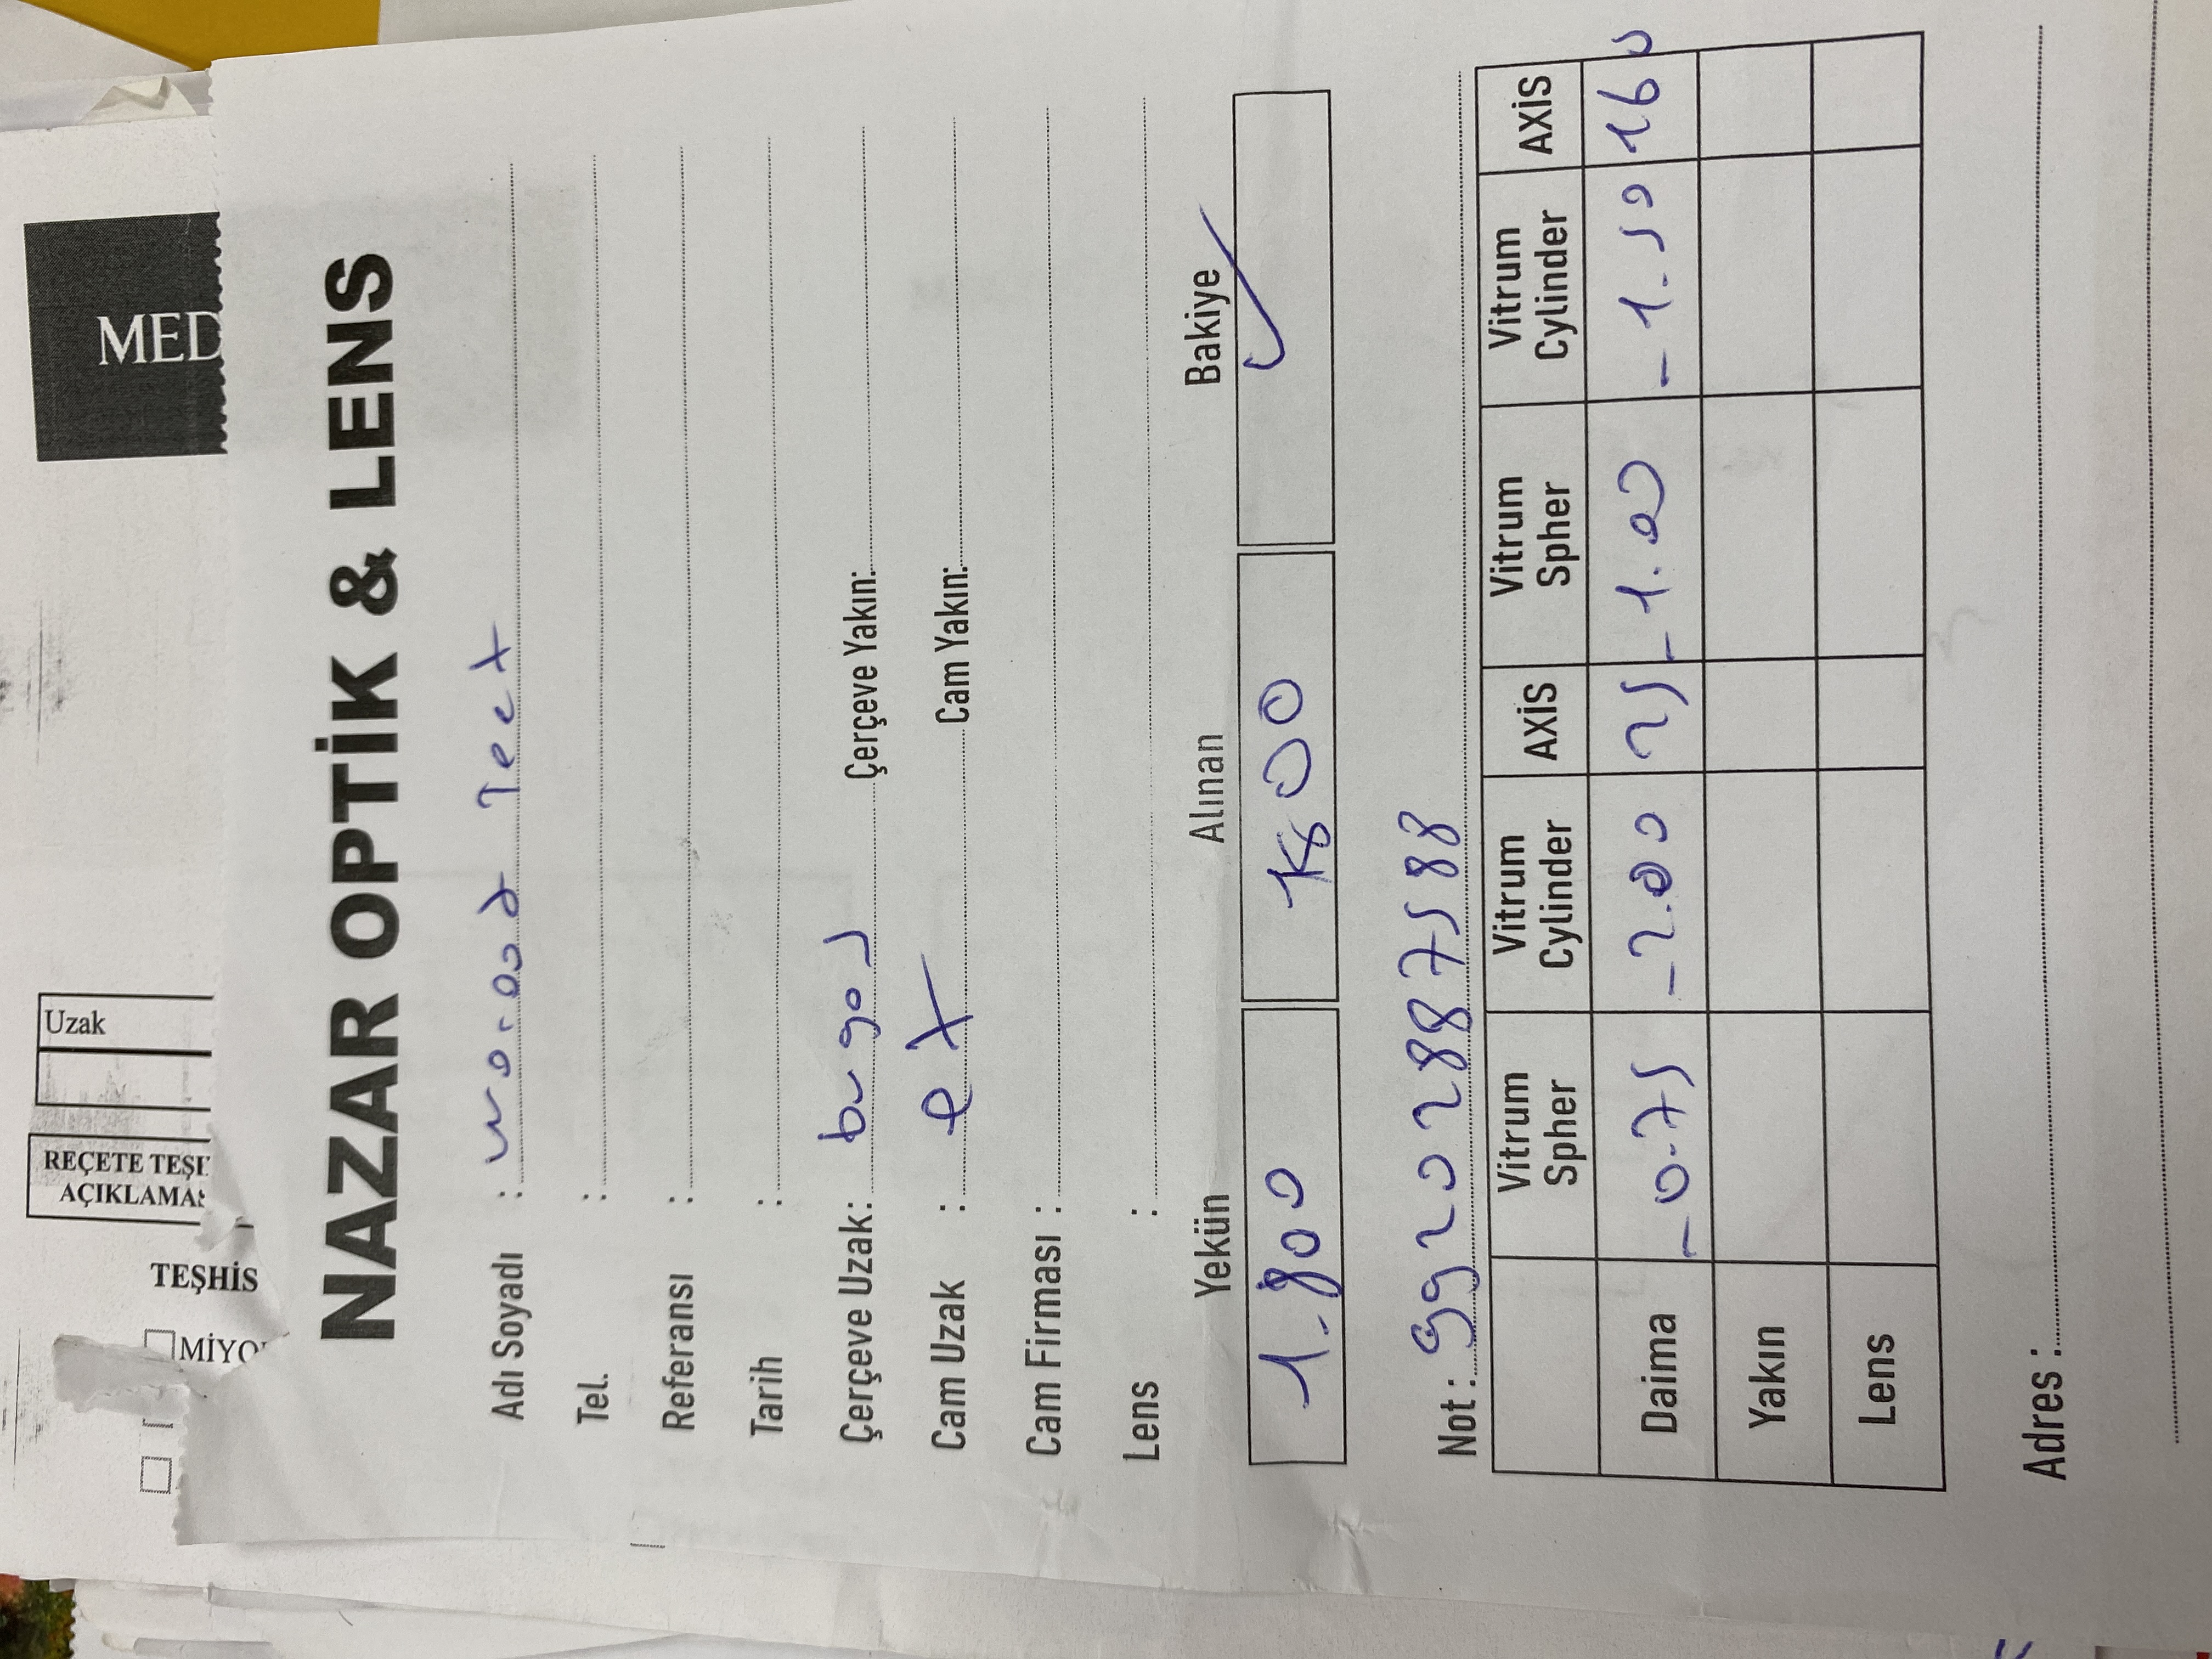 Uzak
REÇETE TEŞ
AÇIKLAMA
TEŞHİS
MİYO
MED
NAZAR OPTİK & LENS
Adı Soyadı :
Tel. :
Referansı :
Tarih :
Çerçeve Uzak: Çerçeve Yakın:
Cam Uzak : Cam Yakın:
Cam Firması :
Lens :
Yekün Alınan Bakiye
1.800 1800 ✓
Not : 992028875 88
Vitrum Spher Vitrum Cylinder AXİS Vitrum Spher Vitrum Cylinder AXİS
Daima -0.75 -2.00 25 -1.00 -1.50 160
Yakın
Lens
Adres :